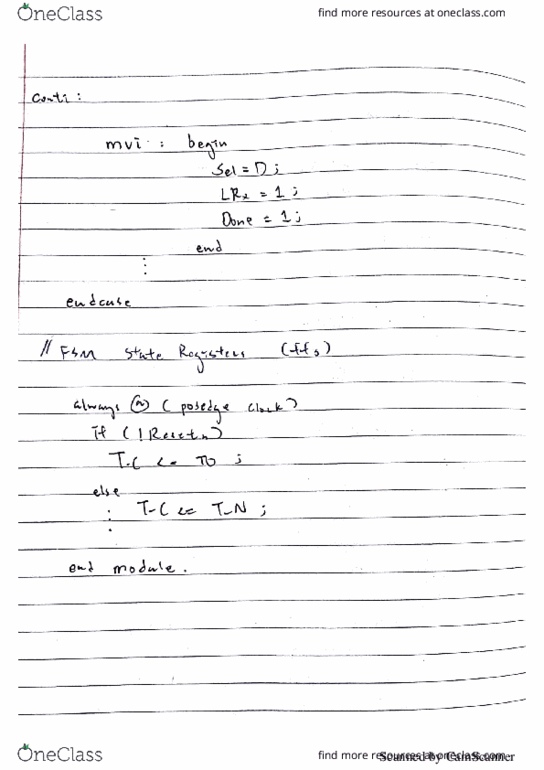 OneClass
find more resources at oneclass.com
Conti :
mvi : begin
Sel = D ;
LRx = 1 ;
Done = 1 ;
end
⋮
endcase
// FSM State Registers (ffs)
always @ ( posedge Clock )
if ( ! Resetn )
T_C <= T0 ;
else
T_C <= T_N ;
⋮
end module .
OneClass
find more resources at oneclass.com
Scanned by CamScanner